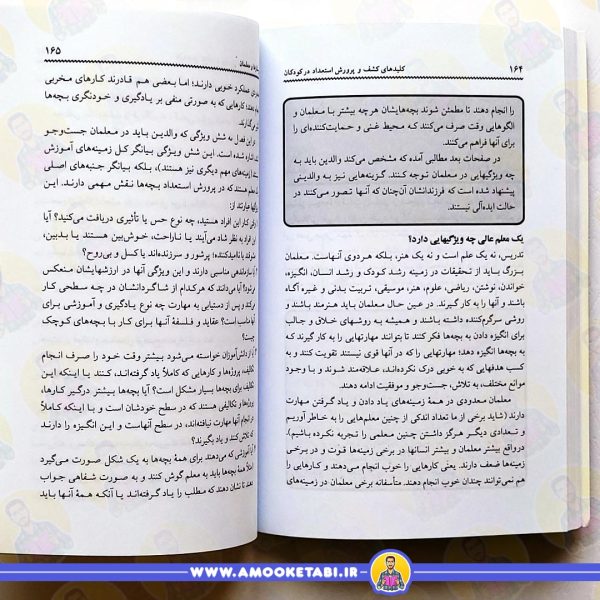 ۱۶۴ کلیدهای کشف و پرورش استعداد در کودکان
را انجام دهند تا مطمئن شوند بچه‌هایشان هر چه بیشتر با معلمان و
الگوهایی وقت صرف می‌کنند که محیط غنی و حمایت‌کننده‌ای را
برای آنها فراهم می‌کنند.
در صفحات بعد مطالبی آمده که مشخص می‌کند والدین باید به
چه ویژگیهایی در معلمان توجه کنند. گزینه‌هایی نیز به والدینی
پیشنهاد شده است که فرزندانشان آن‌چنان که آنها تصور می‌کنند در
حالت ایده‌آلی نیستند.
یک معلم عالی چه ویژگیهایی دارد؟
تدریس، نه یک علم است و نه یک هنر، بلکه هر دوی آنهاست. معلمان
بزرگ باید از تحقیقات در زمینه رشد کودک و رشد انسان، انگیزه،
خواندن، نوشتن، ریاضی، علوم، هنر، موسیقی، تربیت بدنی و غیره آگاه
باشند و آنها را به کار گیرند. در عین حال معلمان باید هنرمند باشند و
روشی سرگرم‌کننده داشته باشند و همیشه به روشهای خلاق و جالب
برای انگیزه دادن به بچه‌ها فکر کنند تا بتوانند مهارتهایی را به کار گیرند که
به بچه‌ها انگیزه دهند؛ مهارتهایی را که در آنها قوی نیستند تقویت کنند و به
کسب هدفهایی که به خوبی درک نکرده‌اند، علاقه‌مند شوند و با وجود
موانع مختلف، به تلاش، جست‌وجو و موفقیت ادامه دهند.
معلمان معدودی در همهٔ زمینه‌های یاد دادن و یاد گرفتن مهارت
دارند (شاید برخی از ما تعداد اندکی از چنین معلم‌هایی را به خاطر آوریم
و تعدادی دیگر هرگز داشتن چنین معلمی را تجربه نکرده باشیم).
درواقع بیشتر معلمان و بیشتر انسانها در برخی زمینه‌ها قوت و در برخی
زمینه‌ها ضعف دارند. یعنی کارهایی را خوب انجام می‌دهند و کارهایی را
هم نمی‌توانند چندان خوب انجام دهند. متأسفانه برخی معلمان در زمینه‌های
معلمان ۱۶۵
عملکرد خوبی دارند؛ اما بعضی هم قادرند کارهای مخربی
کارهایی که به صورتی منفی بر یادگیری و خودنگری بچه‌ها
در این فصل به شش ویژگی که والدین باید در معلمان جست‌وجو
اشاره شده است. این شش ویژگی بیانگر کل زمینه‌های آموزش
زمینه‌های مهم دیگری نیز هستند)، بلکه بیانگر جنبه‌های اصلی
معلم هستند که در پرورش استعداد بچه‌ها نقش مهمی دارند. این
عبارتند از:
کار این افراد هستید، چه نوع حس یا تأثیری دریافت می‌کنید؟ آیا
افراد به نظر شاد می‌آیند یا ناراحت، خوش‌بین هستند یا بدبین،
یا ناامیدکننده)؟ پرشور و سرزنده‌اند یا کسل و بی‌روح؟
سازماندهی مناسبی دارند و این ویژگی آنها در ارزشهایشان منعکس
می‌دانند که هرکدام از شاگردانشان در چه سطحی کار
و پس از دستیابی به مهارت چه نوع یادگیری و آموزشی برای
آنها مناسب است؟ عقاید و فلسفهٔ آنها برای کار با بچه‌های کوچک
چیست؟
از دانش‌آموزان خواسته می‌شود بیشتر وقت خود را صرف انجام
تکالیف، پروژه‌ها و کارهایی که کاملاً یاد گرفته‌اند، کنند یا اینکه این
تکالیف برای بچه‌ها بسیار مشکل است؟ آیا بچه‌ها بیشتر درگیر کارها،
پروژه‌ها و تکالیفی هستند که در سطح خودشان است و با اینکه کاملاً
در انجام آنها مهارت نیافته‌اند، در سطح آنهاست و این انگیزه را دارند
که تلاش کنند و یاد بگیرند؟
آموزشی که برای همهٔ بچه‌ها به یک شکل صورت می‌گیرد
مثلاً همهٔ بچه‌ها باید به معلم گوش کنند و به صورت شفاهی جواب
دهند تا نشان دهند که مطلب را یاد گرفته‌اند) یا آنکه همهٔ آنها باید
WWW.AMOOKETABI.IR